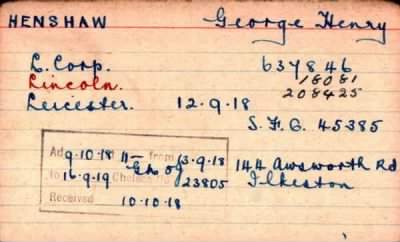 HENSHAW George Henry
L. Corp. 637846
Lincoln. 18081
208425
Leicester. 12.9.18
S.F.G. 45385
Ad 9.10.18 11/- from 13.9.18 144 Awsworth Rd
to 16.9.19 Chelsea 23805 Ilkeston
Received 10.10.18